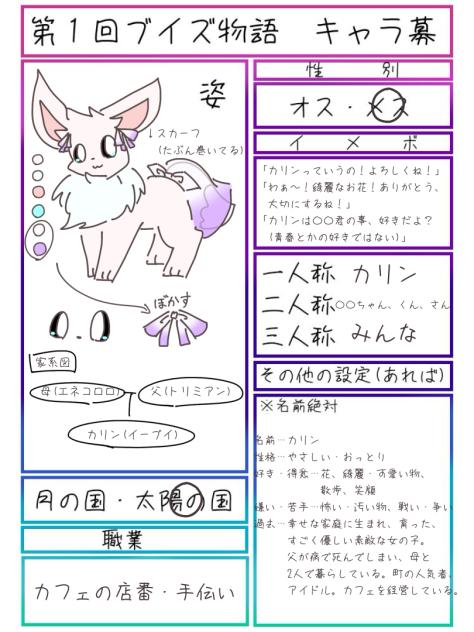 第１回ブイズ物語　キャラ募
姿
↓スカーフ
(たぶん巻いてる)
ぼかす
家系図
母(エネコロロ)
父(トリミアン)
カリン(イーブイ)
月の国・太陽の国
職業
カフェの店番・手伝い
性　別
オス・メス
イ　メ　ボ
「カリンっていうの！よろしくね！」
「わぁ〜！綺麗なお花！ありがとう、
大切にするね！」
「カリンは〇〇君の事、好きだよ？
(青春とかの好きではない)」
一人称 カリン
二人称 〇〇ちゃん、くん、さん
三人称 みんな
その他の設定(あれば)
※名前絶対
名前…カリン
性格…やさしい・おっとり
好き・得意…花、綺麗・可愛い物、
散歩、笑顔
嫌い・苦手…怖い・汚い物、戦い・争い
過去…幸せな家庭に生まれ、育った、
すごく優しい素敵な女の子。
父が病で死んでしまい、母と
2人で暮らしている。町の人気者、
アイドル。カフェを経営している。